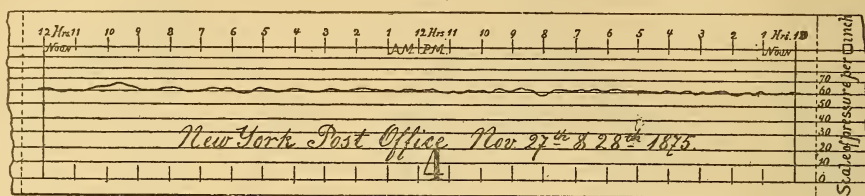 12 Hrs 11 10 9 8 7 6 5 4 3 2 1 12 Hrs 11 10 9 8 7 6 5 4 3 2 1 Hrs. 12
Noon A.M. P.M. Noon
70
60
50
40
30
20
10
0
Scale of pressure per □ inch
New York Post Office Nov. 27th & 28th 1875.